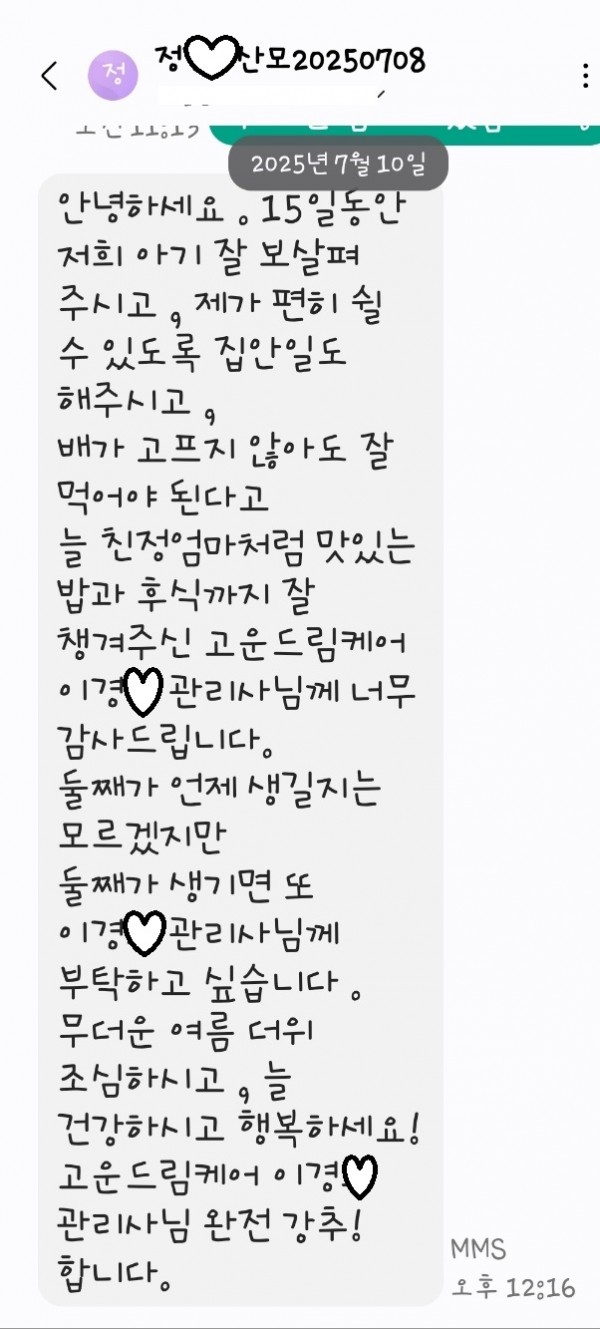 정 산모20250708
정
오전 11:15
2025년 7월 10일
안녕하세요 . 15일동안
저희 아기 잘 보살펴
주시고 , 제가 편히 쉴
수 있도록 집안일도
해주시고 ,
배가 고프지 않아도 잘
먹어야 된다고
늘 친정엄마처럼 맛있는
밥과 후식까지 잘
챙겨주신 고운드림케어
이경 관리사님께 너무
감사드립니다.
둘째가 언제 생길지는
모르겠지만
둘째가 생기면 또
이경 관리사님께
부탁하고 싶습니다 .
무더운 여름 더위
조심하시고 , 늘
건강하시고 행복하세요!
고운드림케어 이경
관리사님 완전 강추!
합니다.
MMS
오후 12:16